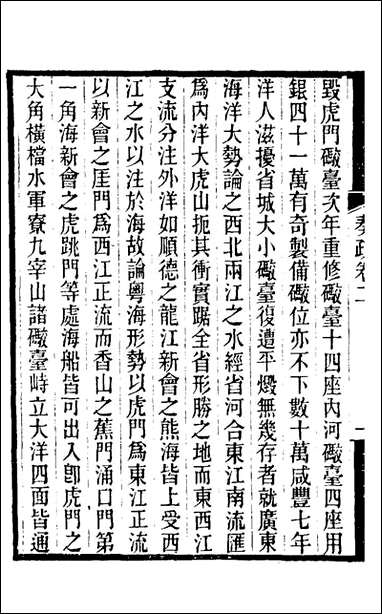 毀虎門礮臺次年重修礮臺十四座內河礮臺四座用
銀四十一萬有奇製備礮位亦不下數十萬咸豐七年
洋人滋擾省城大小礮臺復遭平燬無幾存者就廣東
海洋大勢論之西北兩江之水經省河合東江南流匯
爲內洋大虎山扼其衝實踞全省形勝之地而東西江
支流分注外洋如順德之龍江新會之熊海皆上受西
江之水以注於海故論粵海形勢以虎門爲東江正流
以新會之厓門爲西江正流而香山之蕉門涌口門第
一角海新會之虎跳門等處海船皆可出入卽虎門之
大角橫檔水軍寮九宰山諸礮臺峙立大洋四面皆通
奏疏卷二
一